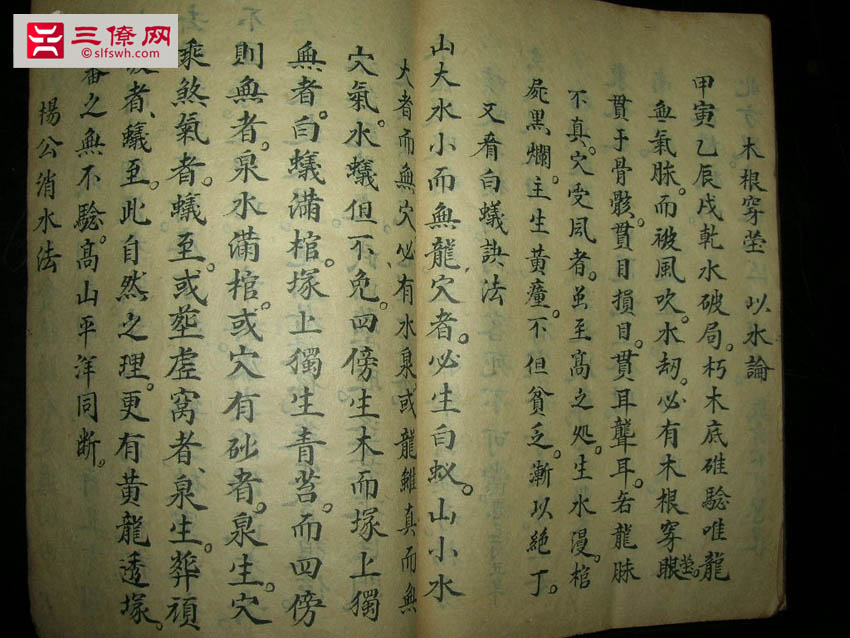 三僚网
slfswh.com
木根穿塋 以水論
甲寅乙辰戌乾水破局。朽木底碓騐唯龍
血氣脉。而被風吹水刼。必有木根穿眼塋。
貫于骨骸。貫目損目。貫耳聾耳。若龍脉
不真。穴受風者。虽至髙之処。生水漫。棺
屍黑爛。主生黃瘇。不但貧乏。漸以絶丁。
又看白蟻訣法
山大水小而無龍穴者。必生白蚁。山小水
大者而無穴必有水泉。或龍雖真而無
穴氣。水蟻但不免。四傍生木而塚上獨
無者。白蟻滿棺。塚上獨生青苔。而四傍
則無者。泉水滿棺。或穴有砂者。泉生。穴
乘煞氣者。蟻至。或塟虚窝者、泉生。葬頑
者、蟻至。此自然之理。更有黃龍透塚。
審之無不騐。髙山平洋同断。
楊公消水法